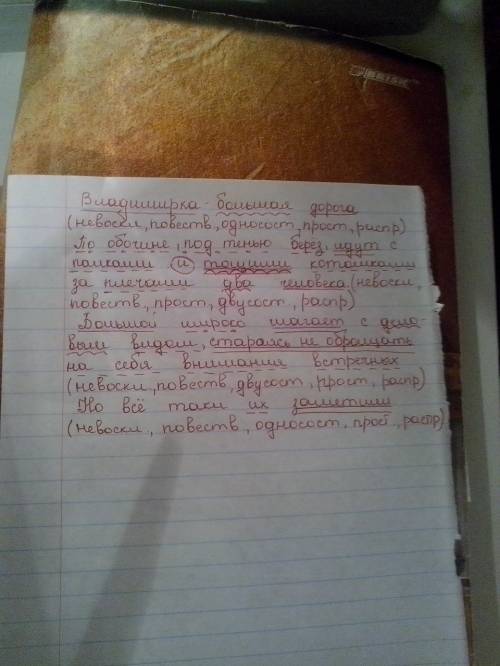 Владимирка - большая дорога
(невоскл, повеств, односост, прост, распр)
По обочине, под тенью берёз, идут с
палками и тощими котомками
за плечами два человека. (невоскл,
повеств., прост, двусост., распр)
Большой широко шагает с дело-
вым видом, стараясь не обращать
на себя внимания встречных
(невоскл, повеств, двусост, прост, распр)
Но всё таки их заметили
(невоскл, повеств, односост, прост, распр)